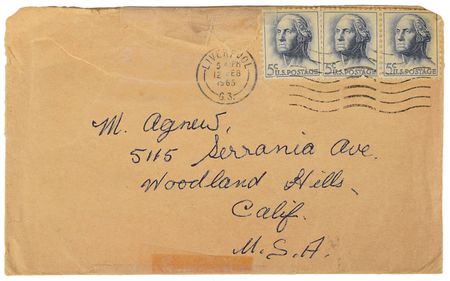 5¢ 5¢ 5¢
U.S. POSTAGE U.S. POSTAGE U.S. POSTAGE
LIVERPOOL
12 FEB
1965
G.3.
M. Agnew,
5115 Serrania Ave.
Woodland Hills
Calif.
U.S.A.